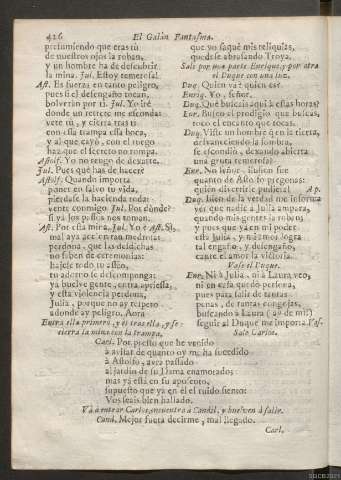 426 El Galàn Fantasma.
presumiendo que eras tù
de nuestros ojos la roban,
y un hombre ha de descubrir
la mina. Jul. Estoy temerosa!
Ast. Es fuerza en tanto peligro,
pues si el desengaño tocan,
bolveràn por ti. Jul. Yo irè
donde un retrete me esconda:
vete tù, y cierra tras ti
con essa trampa essa boca,
y al que cayò, con el ruego
haz que el secreto no rompa.
Astolf. Yo no tengo de dexarte.
Jul. Pues què has de hacer?
Astolf. Quando importa
poner en salvo tu vida,
pierdase la hacienda toda:
vente conmigo. Jul. Por dònde?
si yà los passos nos toman.
Ast. Por esta mina. Jul. Yo? Ast. Si,
mal aya
perdona, que las desdichas
no saben de ceremonias:
hajese todo tu asseo,
tu adorno se descomponga:
ya buelve gente, entra apriessa,
y esta violencia perdona,
Julia, porque no ay respeto
adonde ay peligro. Aora
Entra ella primero, y èl tras ella, y se
cierra la mina con la trampa.
que vo saquè mis reliquias,
quedese abrasando Troya.
Sale por una parte Enrique, y por otra
el Duque con una luz.
Duq. Quien và? quien es?
Enriq. Yo, señor.
Duq. Què buscais aqui à estas horas?
Enr. Busco el prodigio que buscas,
toco el encanto que tocas.
Duq. Viste un hombre que en la tierra,
desvaneciendo la sombra,
se escondiò, dexando abierta
una gruta temerosa?
Enr. No señor: ilusion fue
quanto de Astolfo pregonas:
quien divertirle pudiera! Ap.
Duq. Bien de la verdad me informa
ver que nadie à Julia ampara,
quando mis gentes la roban
y pues que ya en mi poder
està Julia, y mi amor logra
tal engaño, y desengaño,
cante el amor la victoria.
Vase el Duque.
Enr. Ni à Julia, ni à Laura veo,
ni en casa quedò persona,
pues para salir de tantas
penas, de tantas congojas,
buscando à Laura (ay de mi!)
seguir al Duque me importa. Vas.
Sale Carlos.
Carl. Por presto que he venido
à avisar de quanto oy me ha sucedido
à Astolfo, avrà passado
al jardin de su Dama enamorado:
mas yà està en su aposento,
supuesto que ya en èl el ruido siento:
Vos seais bien hallado.
Và à entrar Carlos, encuentra à Candil, y buelven à salir.
Cand. Mejor fuera decirme, mal llegado.
Carl.